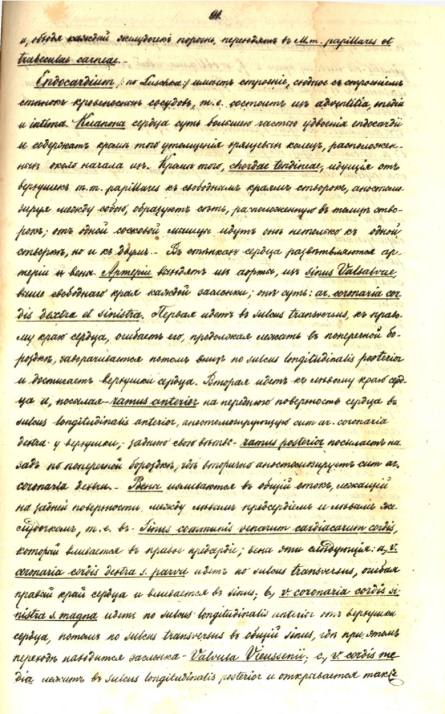 61.
и, обходя каждый желудочек порознь, переходят в M.m. papillares et
trabeculas carneas. –
Endocardium, (по Luschka) имеет строение, сходное с строением
стенок кровеносных сосудов, т.е. состоит из adventitia, media
и intima. Клапана сердца суть большею частью удвоения endocardii
и содержат кроме того утолщения хрящевых колец, расположен-
ных около начала их. Кроме того, chordae tendineae, идущие от
верхушек m.m. papillares к свободным краям створок, анастомо-
зируя между собою, образуют сеть, расположенную в толще ство-
рок; от одной сосковой мышцы идут они не только к одной
створке, но и к двум. – В стенках сердца разветвляются ар-
терии и вены. Артерии выходят из аорты, из sinus Valsalvae,
выше свободного края каждой заслонки; они суть: ar. coronaria cor-
dis dextra et sinistra. Первая идет в sulcus transversus, к право-
му краю сердца, огибает его, продолжая лежать в поперечной бо-
роздке, заворачивается потом вниз по sulcus longitudinalis posterior
и достигает верхушки сердца. Вторая идет к левому краю серд-
ца и, посылая ramus anterior на переднюю поверхность сердца в
sulcus longitudinalis anterior, анастомозирующую с ar. coronaria
dextra у верхушки, заднюю свою ветвь – ramus posterior посылает на-
зад по поперечной бороздке, где вторично анастомозирует с ar.
coronaria dextra. – Вены изливаются в общий сток, лежащий
на задней поверхности между левым предсердием и левым же-
лудочком, т.е. в – Sinus communis venarum cardiacarum cordis,
который вливается в правое предсердие; вены эти следующия: a, v.
coronaria cordis dextra s. parva идет по sulcus transversus, огибая
правый край сердца и вливается в sinus; b, v. coronaria cordis si-
nistra s. magna идет по sulcus longitudinalis anterior от верхушки
сердца, потом по sulcus transversus в общий sinus, где при этом
переходе находится заслонка – Valvula Vieussenii; c, v. cordis me-
dia лежит в sulcus longitudinalis posterior и открывается также